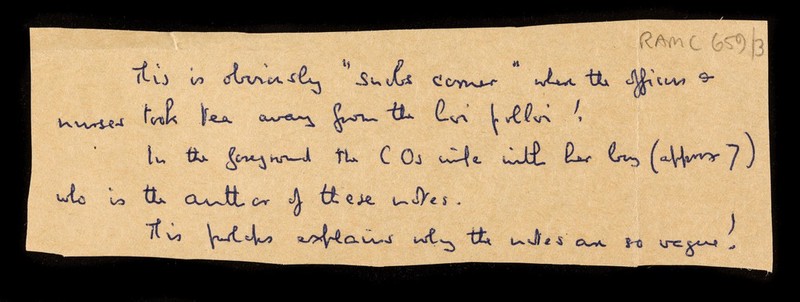 RAMC 659/3
This is obviously "snobs corner" when the officers &
nurses took tea away from the hoi polloi!
In the foreground the COs wife with her boy (approx 7)
who is the author of these notes.
This perhaps explains why the notes are so vague!